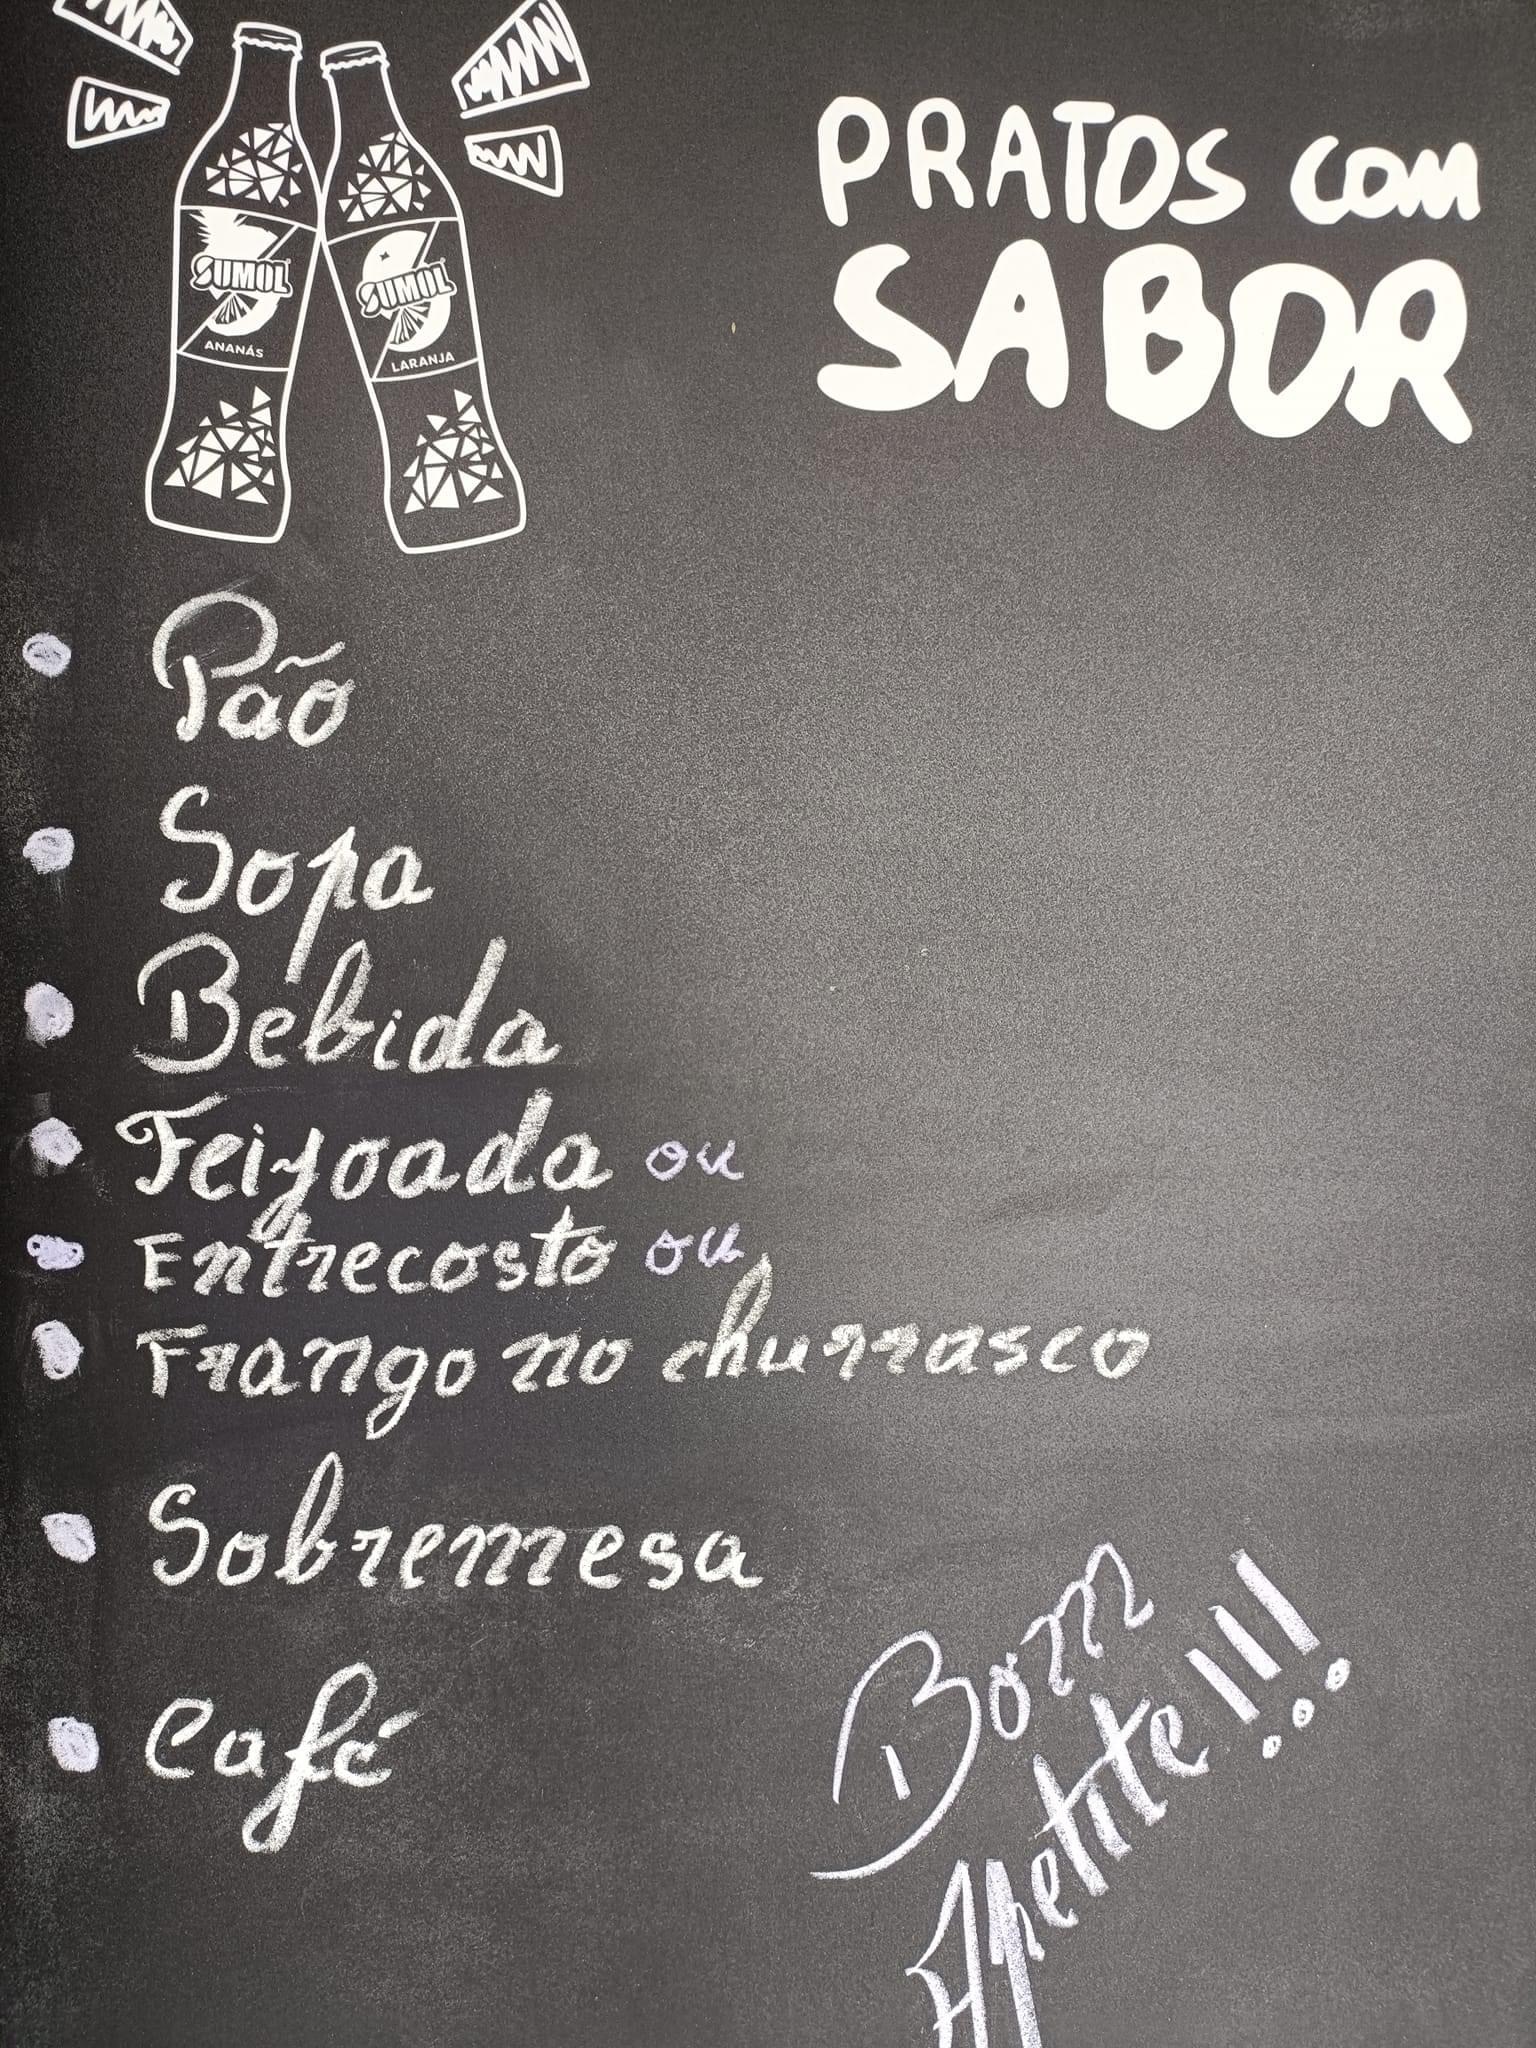 SUMOL
ANANÁS
SUMOL
LARANJA
PRATOS COM
SABOR
Pão
Sopa
Bebida
Feijoada ou
Entrecosto ou
Frango no churrasco
Sobremesa
Café
Bom
Apetite!!!